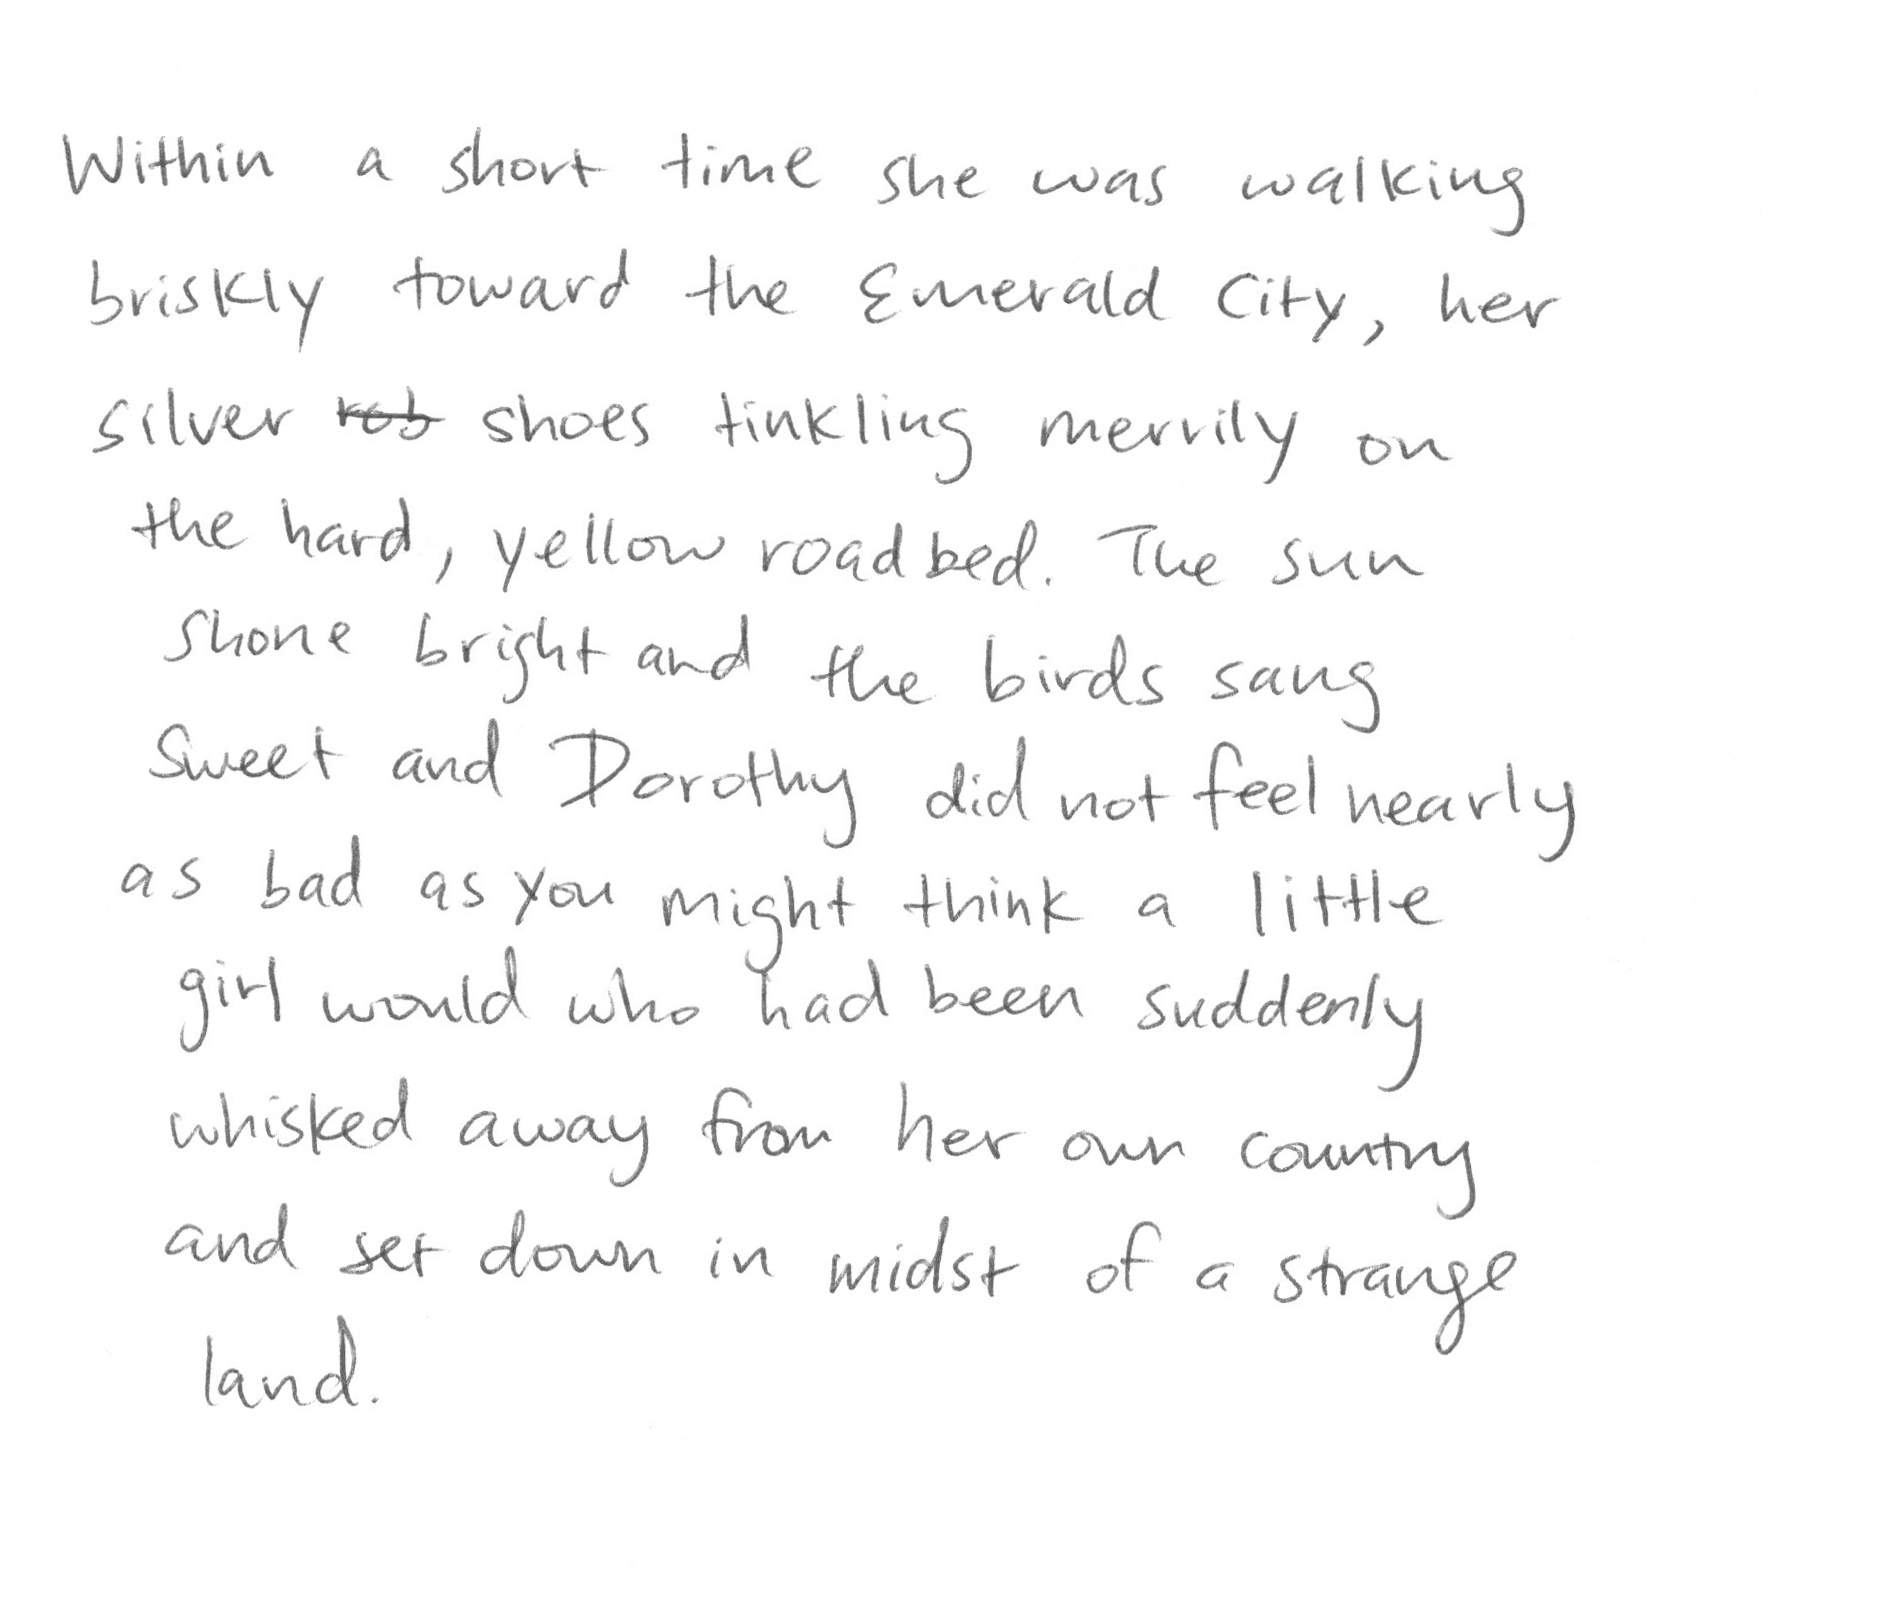 Within a short time she was walking
briskly toward the Emerald City, her
silver shoes tinkling merrily on
the hard, yellow roadbed. The sun
shone bright and the birds sang
sweet and Dorothy did not feel nearly
as bad as you might think a little
girl would who had been suddenly
whisked away from her own country
and set down in midst of a strange
land.